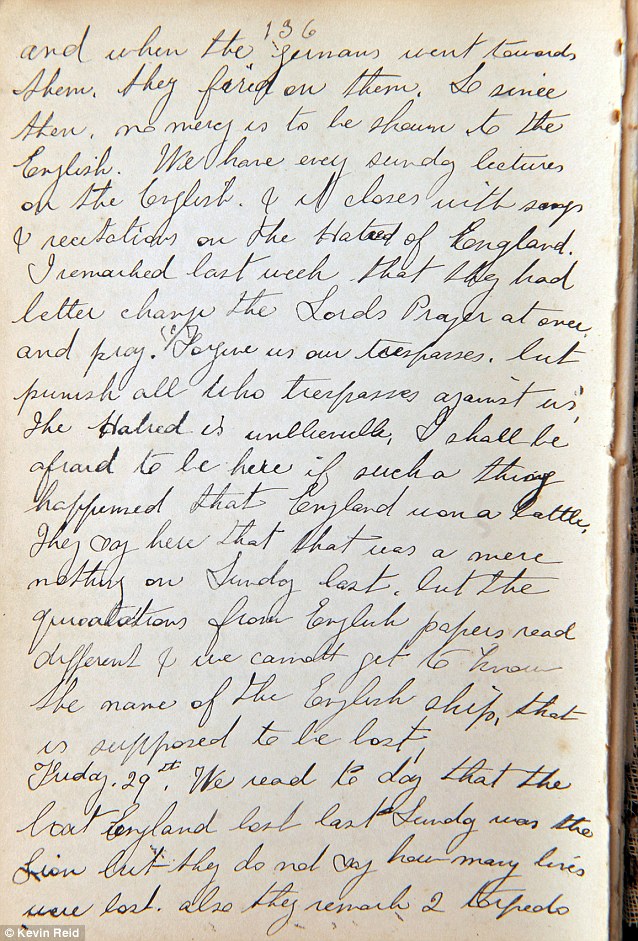 136
and when the germans went towards
them. they fired on them. So since
then. no mercy is to be shown to the
English. We have evey sunday lectures
on the English. & it closes with songs
& recitations on the Hatred of England.
I remarked last week that they had
better change the Lords Prayer at once,
and pray. "Forgive us our trespasses. but
punish all who trespasses against us,
The Hatred is I shall be
afraid to be here if such a thing
happened that England won a battle,
They say here that that was a mere
nothing on Sunday last. but the
from English papers read
different & we cannot get to know
the name of the English ship, that
is supposed to be lost,
Friday. 29th. We read to day that the
boat England lost last Sunday was the
Lion but they do not say how many lives
were lost. also they remark 2 torpedo
© Kevin Reid